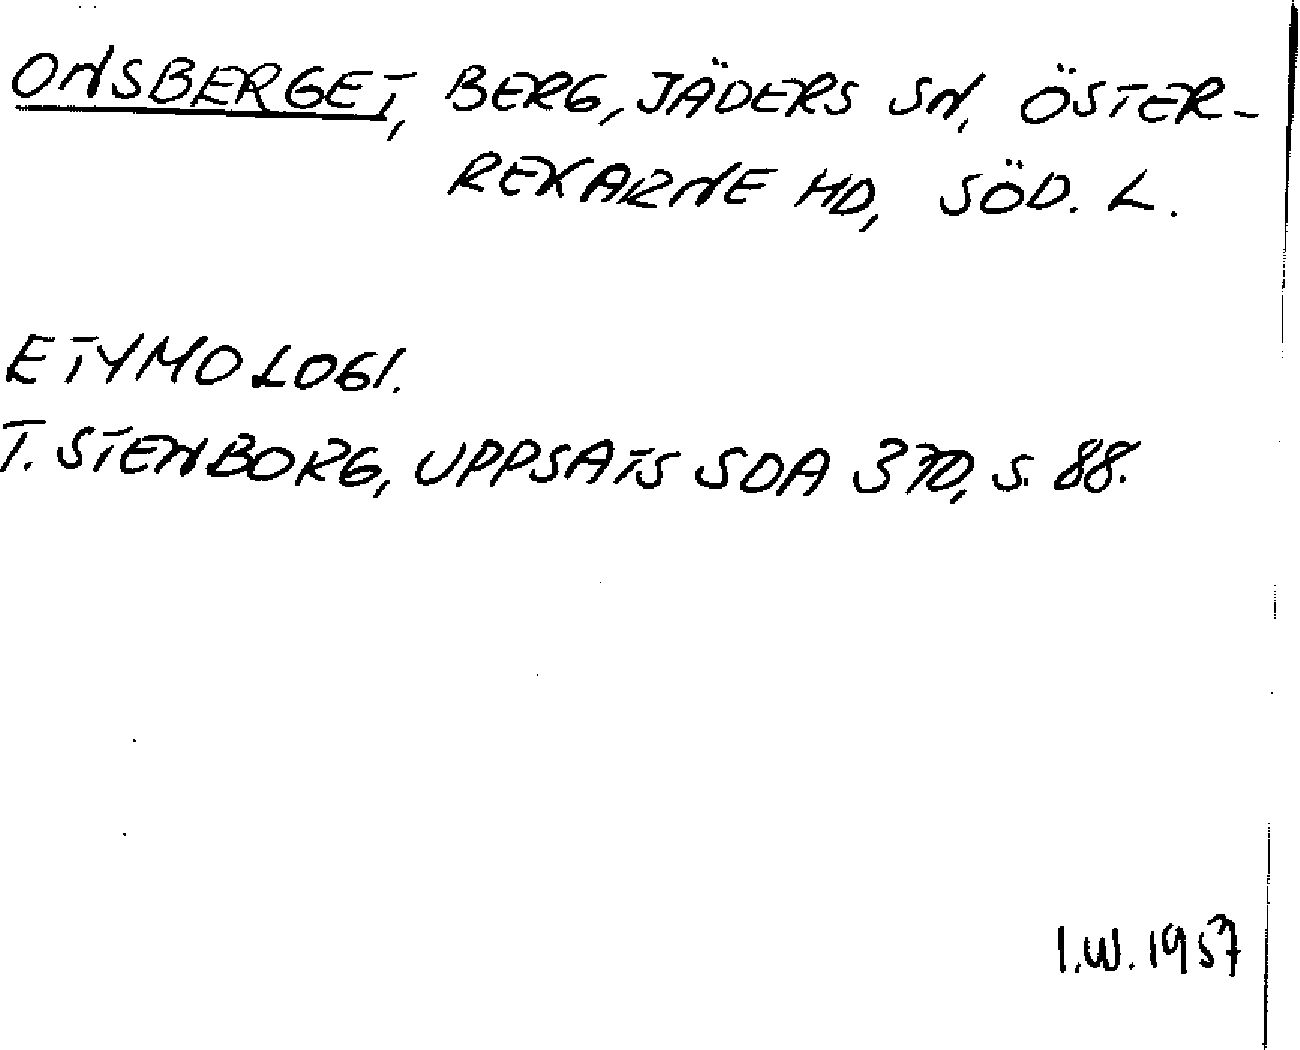 ONSBERGET, BERG, JÄDERS SN, ÖSTER-
REKARNE HD, SÖD. L.
ETYMOLOGI.
T. STENBORG, UPPSATS SOA 370, S. 88.
I.W. 1957